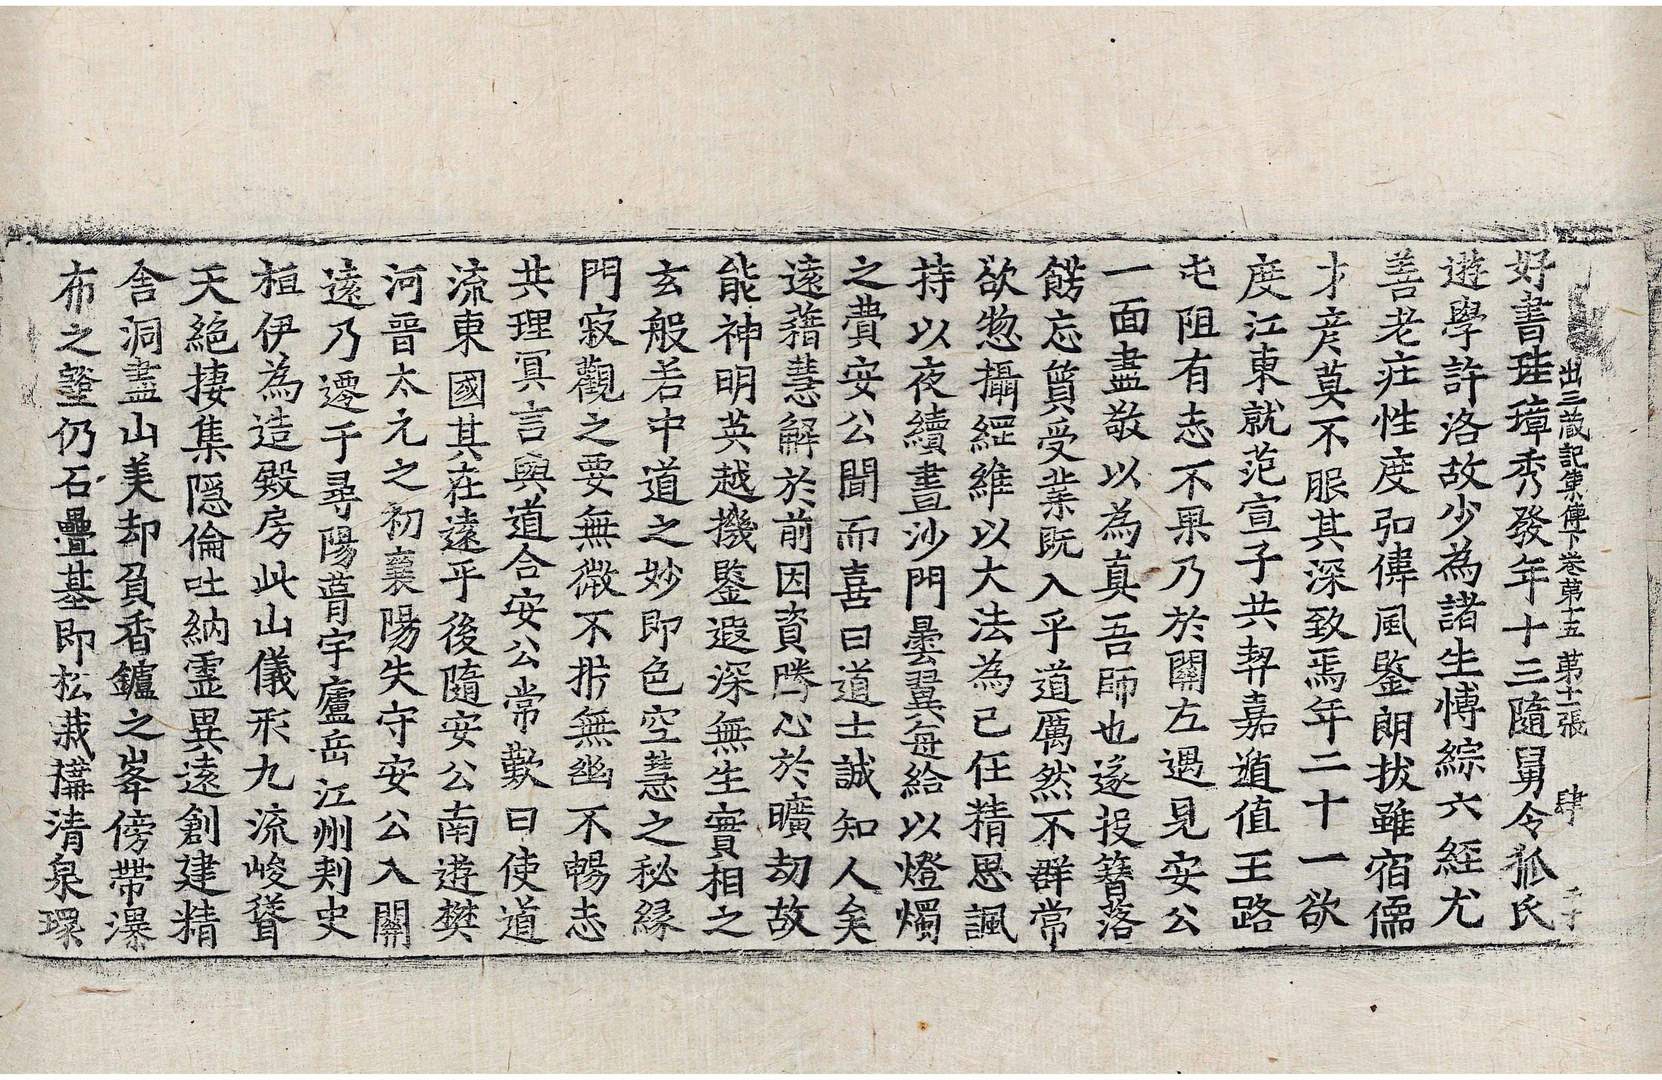 出三藏記集傳下卷第十五 第十二張 肆
好書珪璋秀發年十三隨舅令狐氏
遊學許洛故少為諸生博綜六經尤
善老莊性度弘偉風鑒朗拔雖宿儒
才彥莫不服其深致焉年二十一欲
度江東就范宣子共契嘉遁值王路
屯阻有志不果乃於關左遇見安公
一面盡敬以為真吾師也遂投簪落
髮忘質受業既入乎道厲然不群常
欲惣攝綱維以大法為己任精思諷
持以夜續晝沙門曇翼每給以燈燭
之費安公聞而喜曰道士誠知人矣
遠藉慧解於前因資勝心於曠劫故
能神明英越機鑒遐深無生實相之
玄般若中道之妙即色空慧之秘緣
門寂觀之要無微不析無幽不暢志
共理冥言與道合安公常歎曰使道
流東國其在遠乎後隨安公南遊樊
河晉太元之初襄陽失守安公入關
遠乃遷于尋陽葺宇廬岳江州刺史
桓伊為造殿房此山儀形九流峻聳
天絕棲集隱倫吐納靈異遠創建精
舍洞盡山美却負香鑪之峯傍帶瀑
布之壑仍石疊基即松栽構清泉環